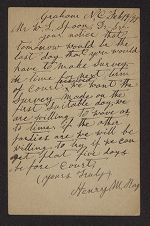 Graham N.C. Feb 19/98
Mr W. L. Spoon D. Sir
your notice that
tomorrow would be the
last day that you would
have to make survey
time next term
of Court we want the
Survey made on the
first suitable day we
are willing to move as
to lines if the other
parties are we will be
willing to try if we can
get plat five days
before Court
(yours Truly)
Henry M. May